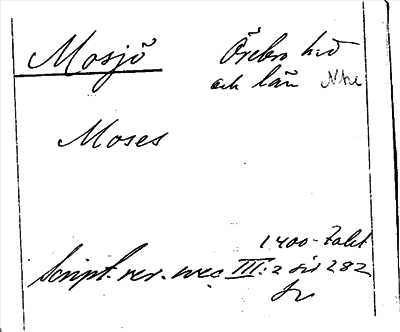 Mosjö Örebro hd
och län Nke
Moses
1400-talet
Script. rer. svec. III:2 sid 282